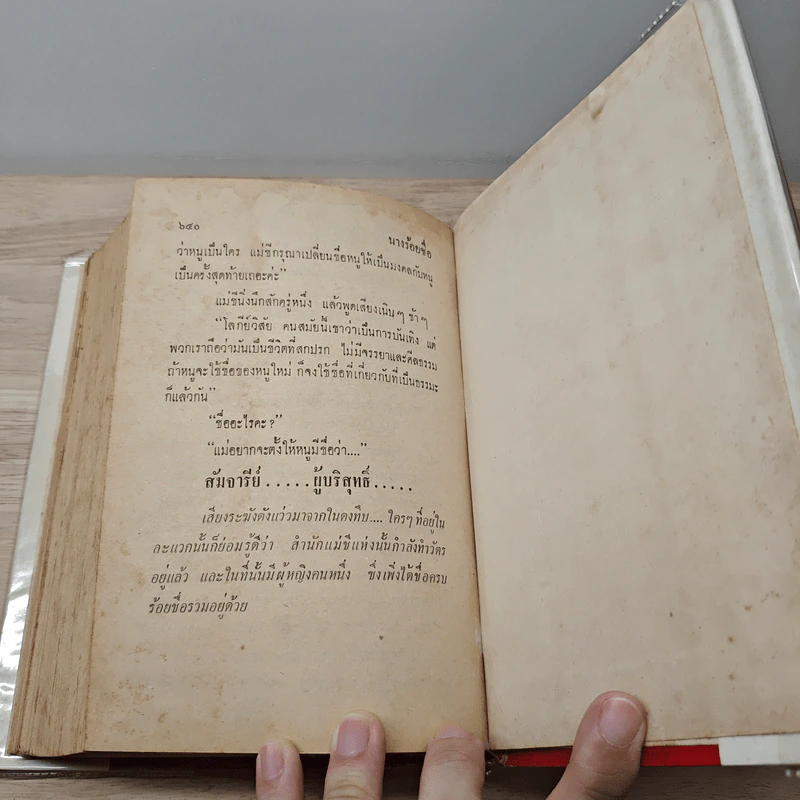 ๖๔๐
นางร้อยชื่อ
ว่าหนูเป็นใคร แม่ชีกรุณาเปลี่ยนชื่อหนูให้เป็นมงคลกับหนู
เป็นครั้งสุดท้ายเถอะค่ะ”
แม่ชีนิ่งนึกสักครู่หนึ่ง แล้วพูดเสียงเนิบๆ ช้าๆ
“โลกีย์วิสัย คนสมัยนี้เขาว่าเป็นการบันเทิง แต่
พวกเราถือว่ามันเป็นชีวิตที่สกปรก ไม่มีจรรยาและศีลธรรม
ถ้าหนูจะใช้ชื่อของหนูใหม่ ก็จงใช้ชื่อที่เกี่ยวกับที่เป็นธรรมะ
ก็แล้วกัน”
“ชื่ออะไรคะ?”
“แม่อยากจะตั้งให้หนูมีชื่อว่า....”
สัมจารีย์ .....ผู้บริสุทธิ์ .....
เสียงระฆังดังแว่วมาจากในดงทึบ.... ใครๆ ที่อยู่ใน
ละแวกนั้นก็ย่อมรู้ดีว่า สำนักแม่ชีแห่งนั้นกำลังทำวัตร
อยู่แล้ว และในที่นั้นมีผู้หญิงคนหนึ่ง ซึ่งเพิ่งได้ชื่อครบ
ร้อยชื่อรวมอยู่ด้วย